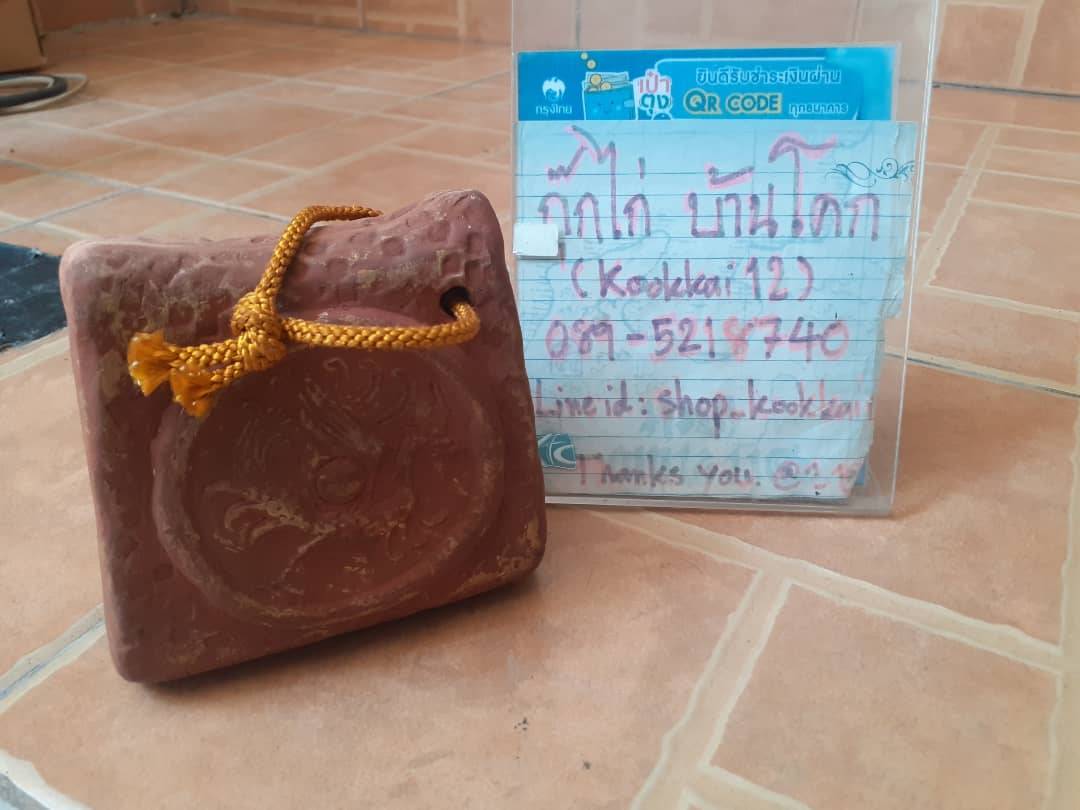 กรุงไทย
เป๋า
ตุง
ยินดีรับชำระเงินผ่าน
QR CODE ทุกธนาคาร
กุ๊กไก่ บ้านโคก
(Kookkai 12)
089-5218740
Line id: shop_kookkai
Thanks you.